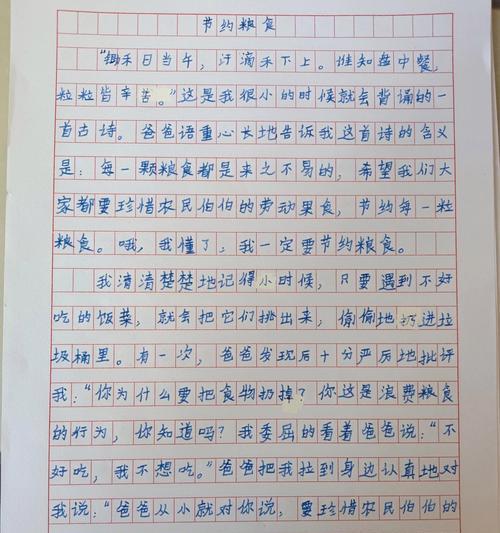 节约粮食
“锄禾日当午，汗滴禾下土。谁知盘中餐，
粒粒皆辛苦。”这是我很小的时候就会背诵的一
首古诗。爸爸语重心长地告诉我这首诗的含义
是：每一颗粮食都是来之不易的，希望我们大
家都要珍惜农民伯伯的劳动果食，节约每一粒
粮食。哦，我懂了，我一定要节约粮食。
我清清楚楚地记得小时候，只要遇到不好
吃的饭菜，就会把它们挑出来，偷偷地扔进垃
圾桶里。有一次，爸爸发现后十分严厉地批评
我：“你为什么要把食物扔掉？你这是浪费粮食
的行为，你知道吗？我委屈的看着爸爸说：“不
好吃，我不想吃。”爸爸把我拉到身边认真地对
我说：“爸爸从小就对你说，要珍惜农民伯伯的